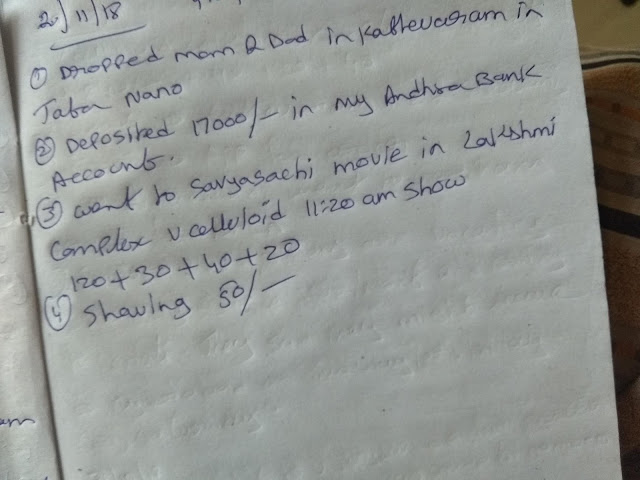 2/11/18
① Dropped mom & Dad in Kathevaram in
Tata Nano
② Deposited 17000/- in my Andhra Bank
Account.
③ went to Savyasachi movie in Lakshmi
Complex V celluloid 11:20 am show
120+30+40+20
④ Shaving 50/-
am